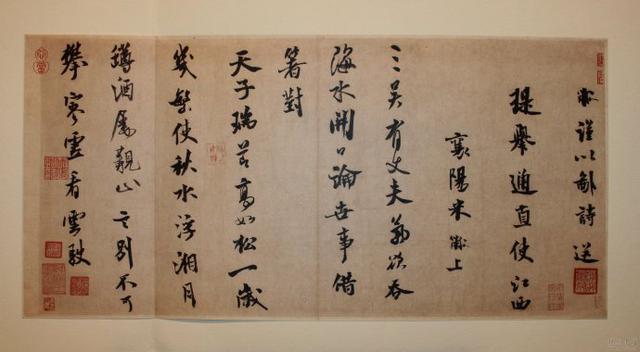 黻謹以鄙詩送
提舉通直使江西
襄陽米黻上
三吳有丈夫氣欲吞
海水開口論世事借
箸對
天子瑞節高如松一歲
幾繁使秋水浮湘月
罇酒屬山別不可
攀寒雲看雲駛